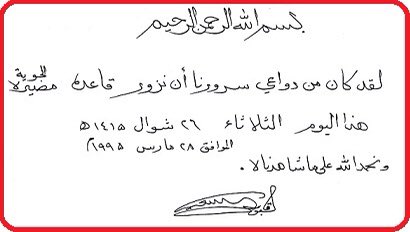 بسم الله الرحمن الرحيم
لقد كان من دواعي سرورنا أن نزور قاعدة مصيرة الجوية
هذا اليوم الثلاثاء ٢٦ شوال ١٤١٥ هـ
الموافق ٢٨ مارس ١٩٩٥م
ونحمد الله على ما شاهدناه.
قابوس